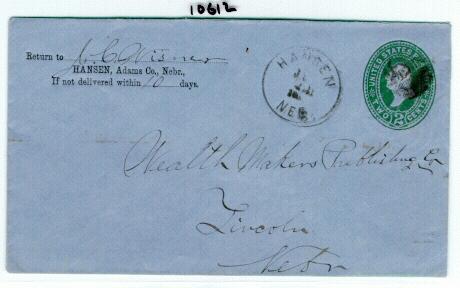 10612
Return to J. C. Wisner
HANSEN, Adams Co., Nebr.,
If not delivered within 10 days.
HANSEN
NEB.
UNITED STATES
TWO 2 CENTS
Wealth Makers Publishing Co
Lincoln
Nebr